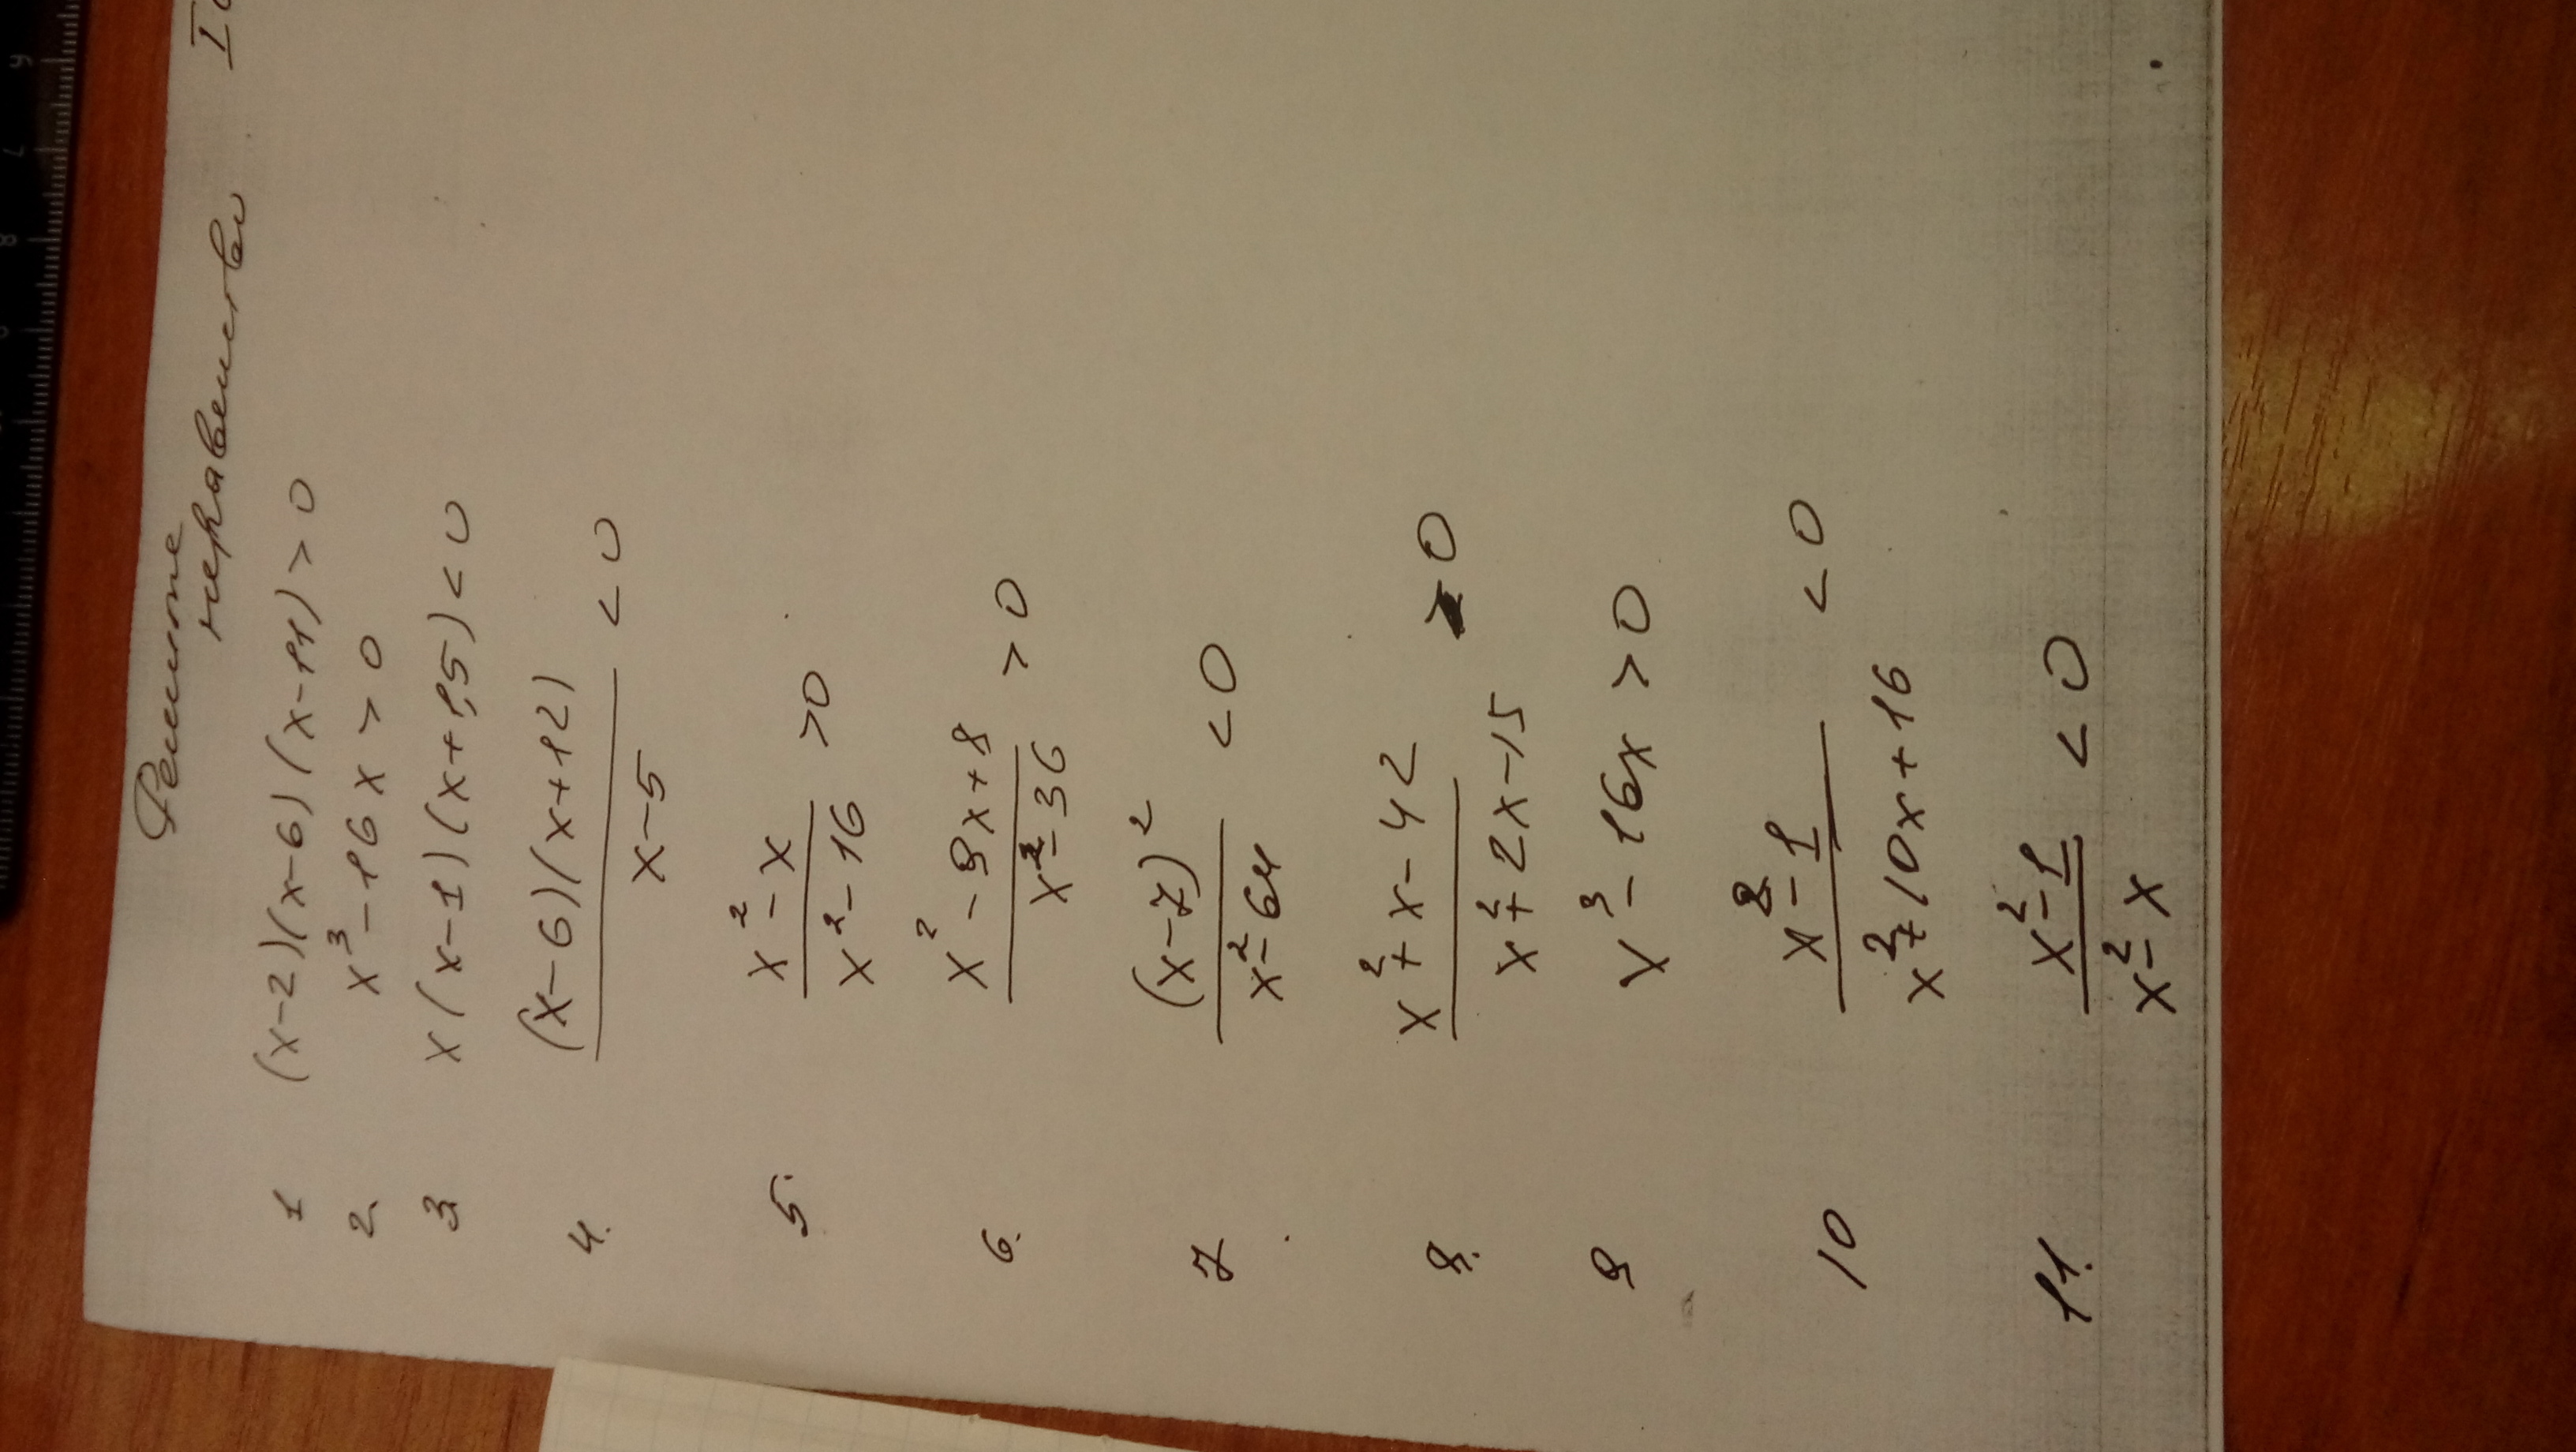 Решите
неравенство
1 (x-2)(x-6)(x-11)>0
2. x³-16x>0
3 x(x-1)(x+1,5)<0
4. (x-6)(x+12)/x-5 <0
5. x²-x/x²-16 >0
6. x²-9x+8/x²-36 >0
7 (x-7)²/x²-64 <0
8. x²+x-42/x²+2x-15 >0
9 x³-16x>0
10 x²-1/x²+10x+16 <0
11. x²-1/x²-x <0